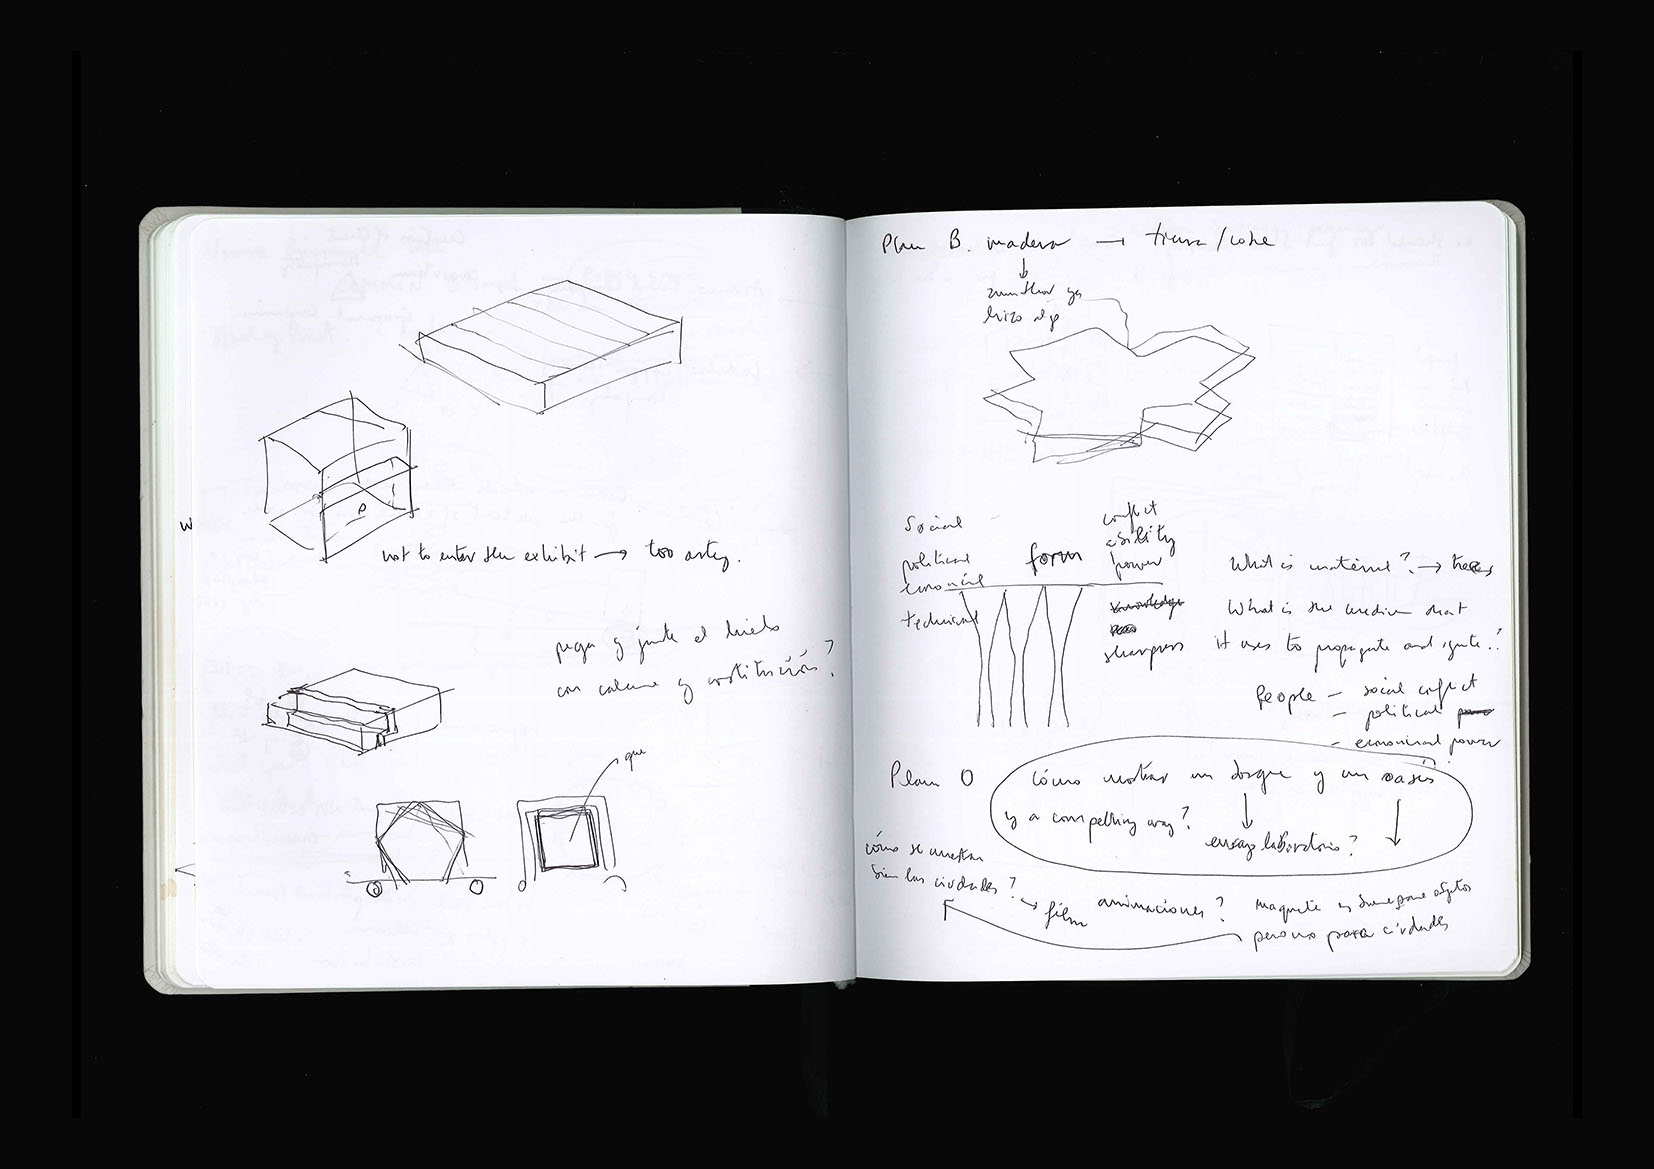 w
not to enter the exhibit → too artsy.
y junte el hielo
con y
que
Plan B. madera → tierra/
ya
hizo algo
social
political
technical
form
conflict
ability
power
knowledge
sharpness
What is material? → trees
What is the medium that
it uses to propagate and ignite?
People – social conflict
– political
– economical power
Plan O
cómo mostrar un bosque y un oasis
y a compelling way?
ensayo laboratorio?
cómo se muestran
bien las ciudades?
→ film
animaciones?
maquete es buena para objetos
pero no para ciudades